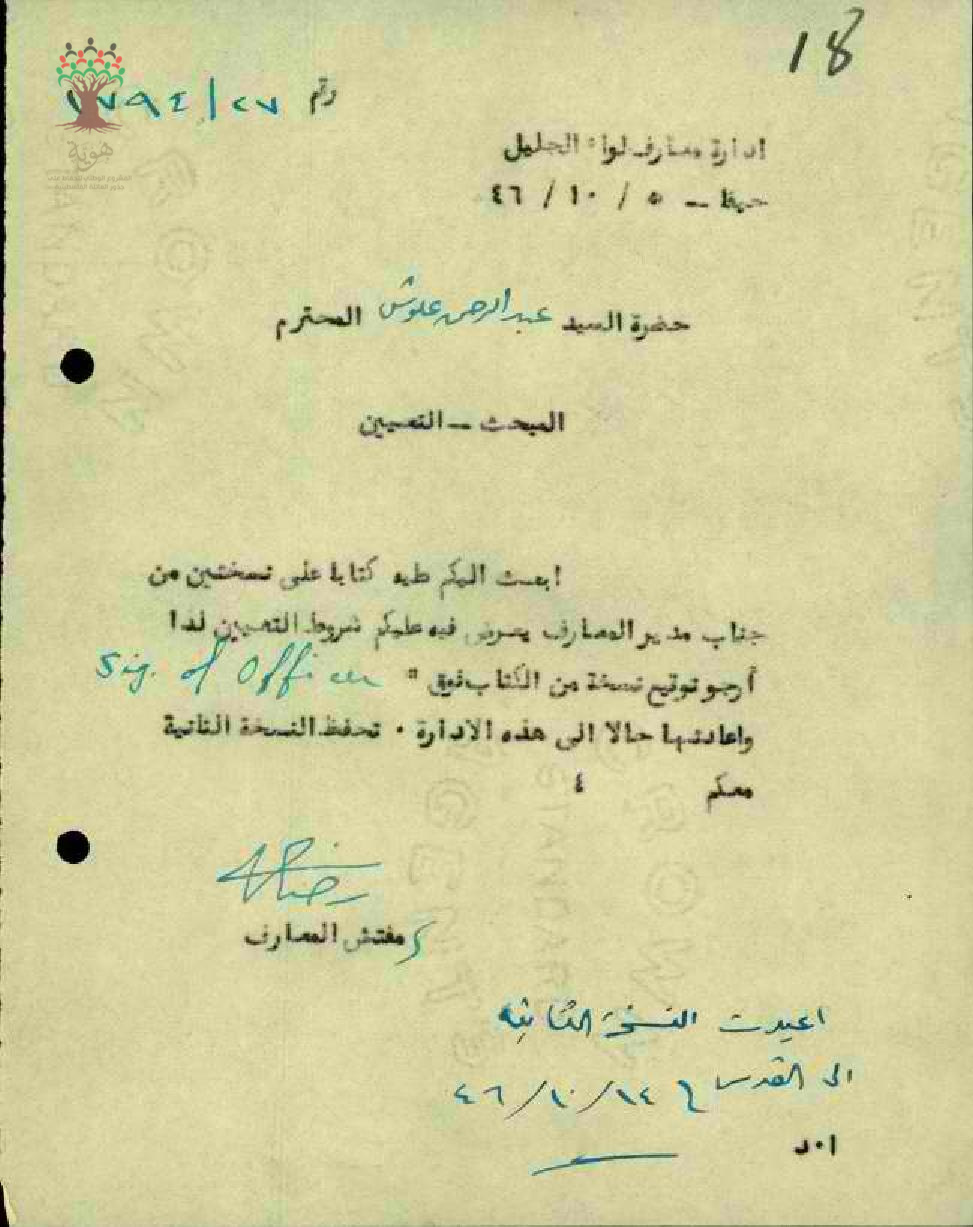 18
رقم ١٧٩٤/٢٧
هوية
ادارة معارف لواء الجليل
حيفا – ٥ / ١٠ / ٤٦
حضرة السيد عبد الرحمن علوش المحترم
المبحث – التعيين
ابعث اليكم طيه كتابا على نسختين من
جناب مدير المعارف يعرض فيه عليكم شروط التعيين لذا
أرجو توقيع نسخة من الكتاب فوق " Sig. of Officer
واعادتها حالا الى هذه الادارة . تحفظ النسخة الثانية
معكم ٤
مفتش المعارف
اعيدت النسخة الثانية
الى القدس في ٤٦/١٠/١٤
ا٠د